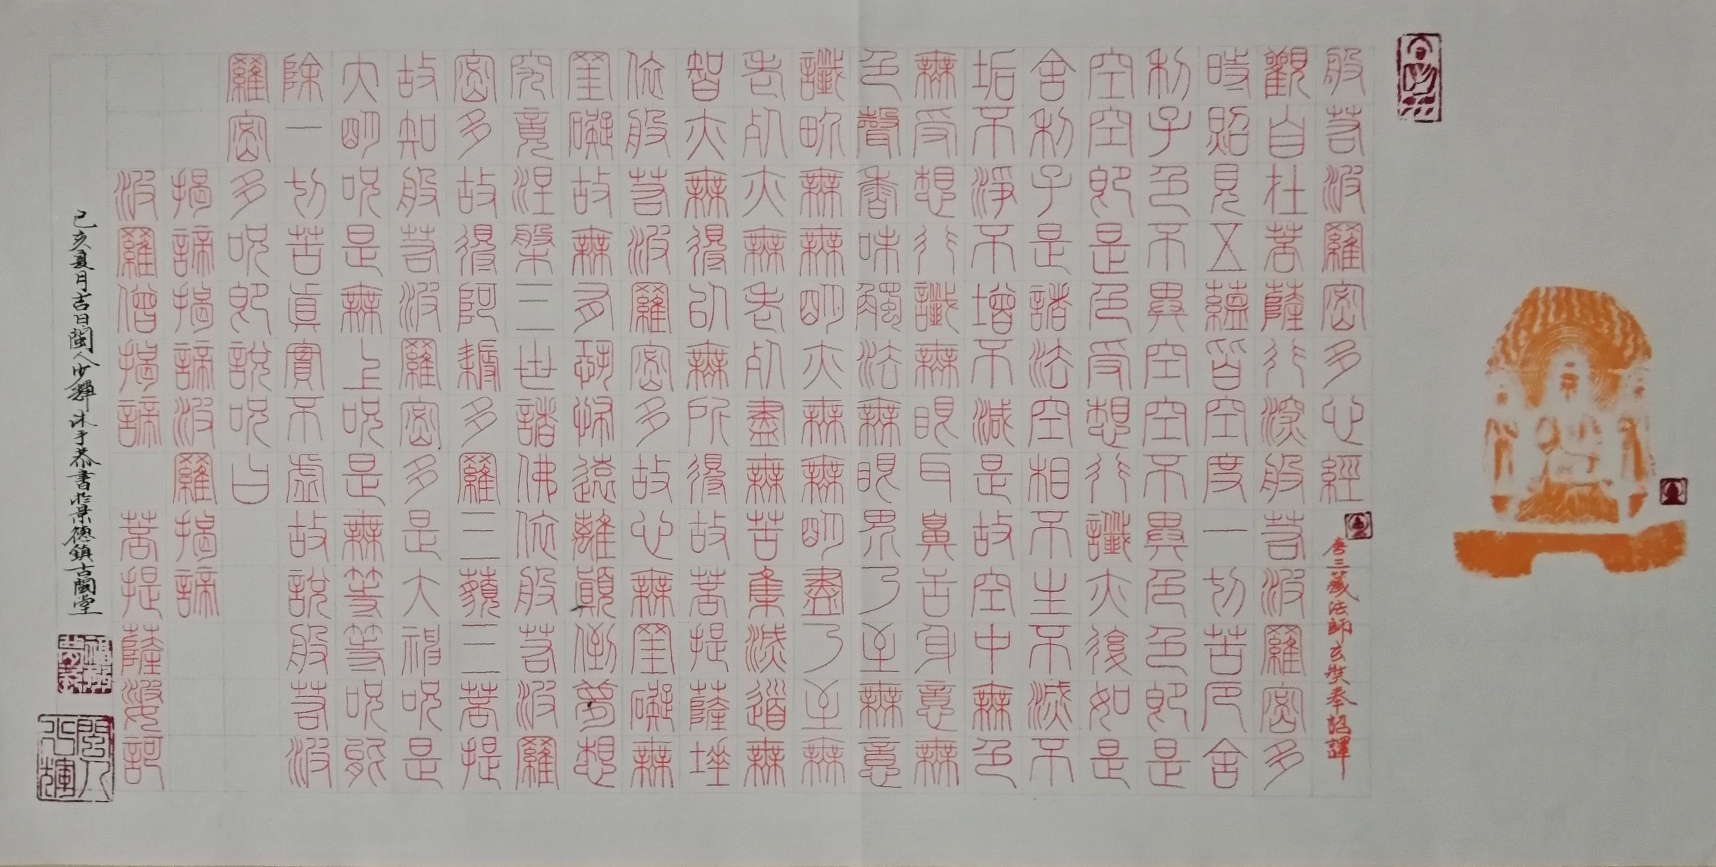 般若波羅蜜多心經
唐三藏法師玄奘奉詔譯
觀自在菩薩行深般若波羅蜜多
時照見五蘊皆空度一切苦厄舍
利子色不異空空不異色色即是
空空即是色受想行識亦復如是
舍利子是諸法空相不生不滅不
垢不淨不增不減是故空中無色
無受想行識無眼耳鼻舌身意無
色聲香味觸法無眼界乃至無意
識界無無明亦無無明盡乃至無
老死亦無老死盡無苦集滅道無
智亦無得以無所得故菩提薩埵
依般若波羅蜜多故心無罣礙無
罣礙故無有恐怖遠離顛倒夢想
究竟涅槃三世諸佛依般若波羅
蜜多故得阿耨多羅三藐三菩提
故知般若波羅蜜多是大神咒是
大明咒是無上咒是無等等咒能
除一切苦真實不虛故說般若波
羅蜜多咒即說咒曰
揭諦揭諦波羅揭諦
波羅僧揭諦 菩提薩婆訶
己亥夏月吉日閩人少輝沐手恭書於景德鎮古閩堂